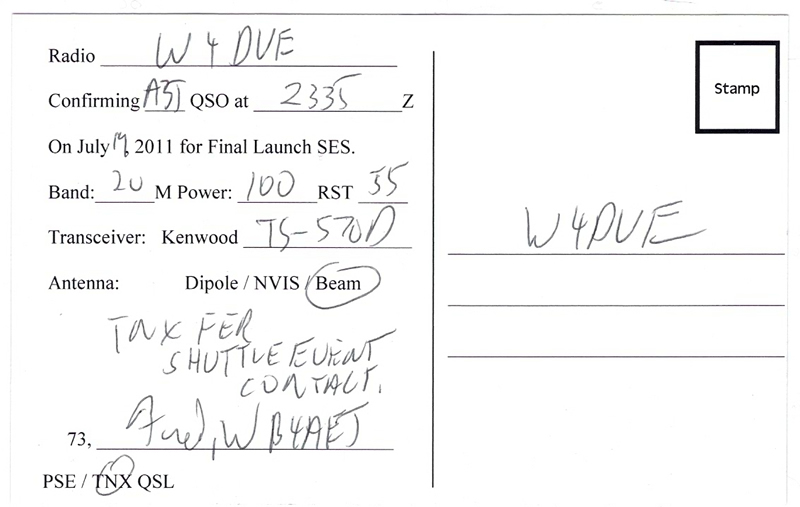 Radio W4DVE
Confirming A3J QSO at 2335 Z
On July 19, 2011 for Final Launch SES.
Band: 20 M Power: 100 RST 55
Transceiver: Kenwood TS-570D
Antenna: Dipole / NVIS / Beam
TNX FER
SHUTTLE EVENT
CONTACT.
73, Fred, WB4AEJ
PSE / TNX QSL
Stamp
W4DVE